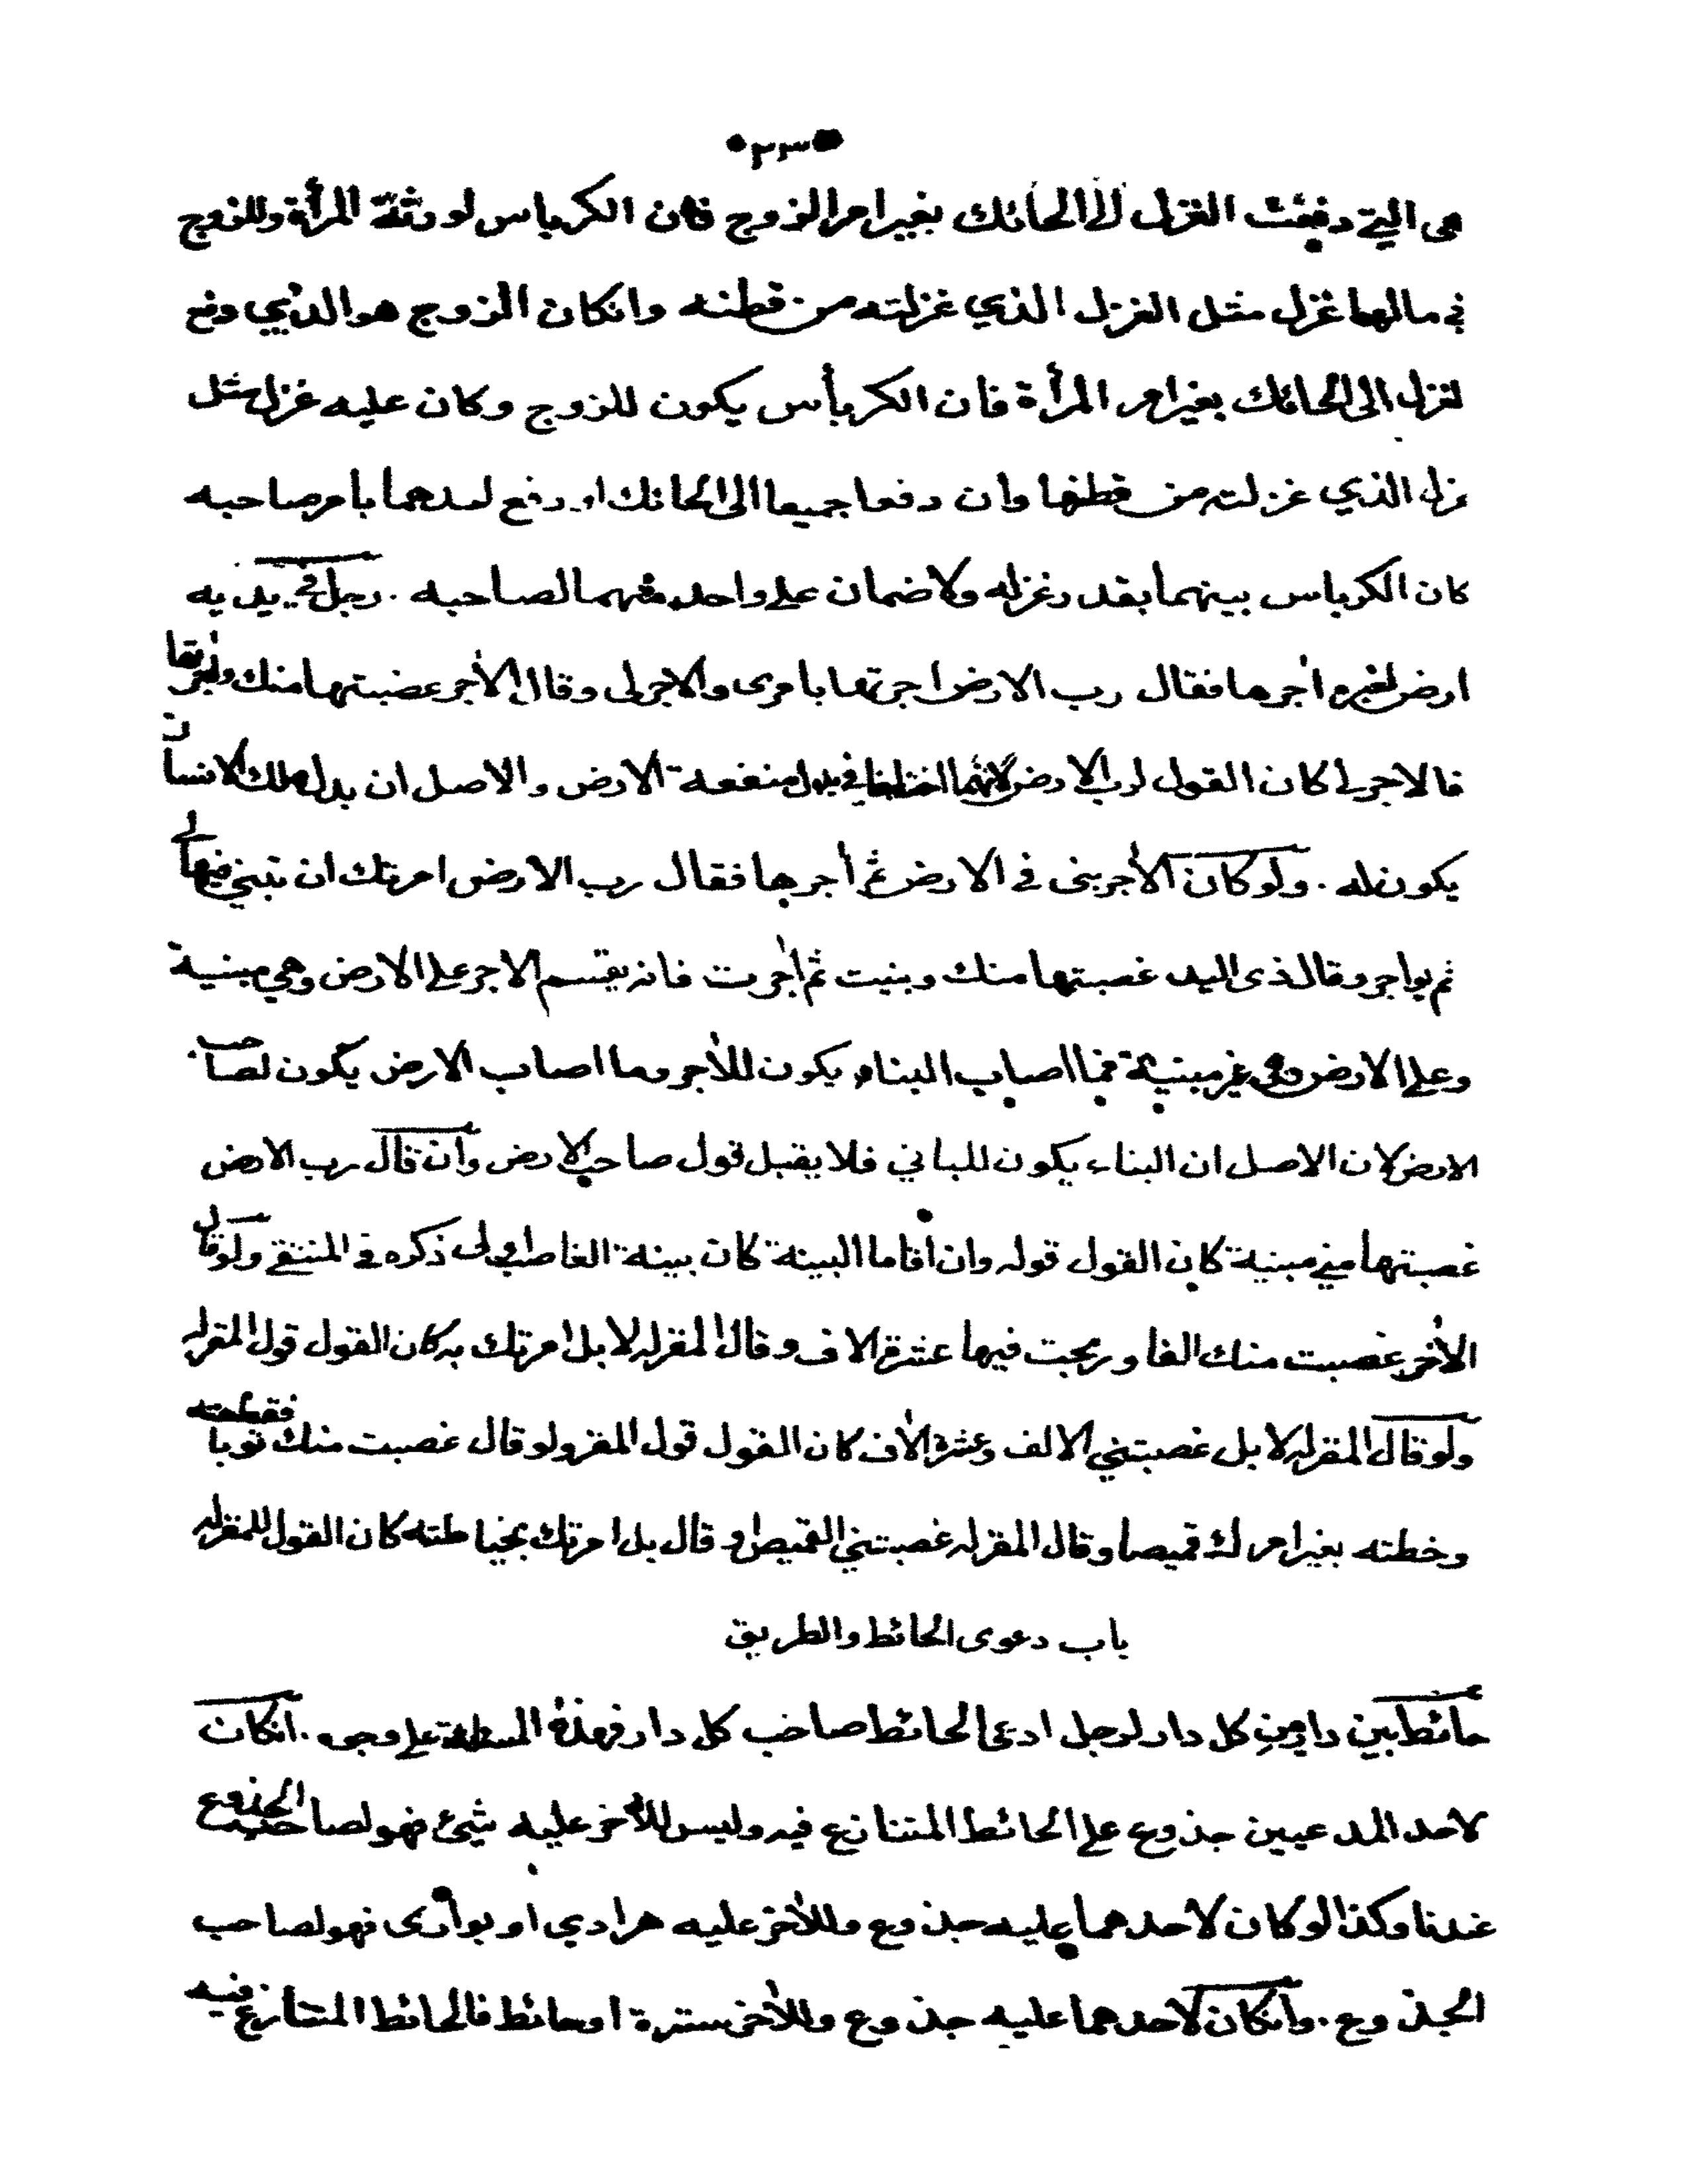 ٢٣
هى التي دفعت الغزل الى الحائك بغير امر الزوج فان الكرباس لورثة المرأة وللزوج
في مالها غزل مثل الغزل الذي غزلته من قطنه وانكان الزوج هو الذي دفع
لغزل الى الحائك بغير امر المرأة فان الكرباس يكون للزوج وكان عليه غزل مثل
غزل الذي غزلته من قطنها وان دفعا جميعا الى الحائك او دفع احدهما بامر صاحبه
كان الكرباس بينهما بقدر غزله ولا ضمان على واحد منهما لصاحبه . رجل في يديه
ارض لغيره اٰجرها فقال رب الارض اجرتها بامرى والاجر لى وقال الاٰجر غصبتها منك واٰجرتها
فالاجر لي كان القول لرب الارض لانهما اختلفا في بدل منفعة الارض والاصل ان بدل ملك الانسان
يكون له . ولو كان الاٰجر بنى في الارض ثم أجرها فقال رب الارض امرتك ان تبني فيها لي
ثم يواجر وقال ذى اليد غصبتها منك وبنيت ثم اٰجرت فانه يقسم الاجر على الارض وهي مبنية
وعلى الارض وهى غير مبنية فما اصاب البناء يكون للاٰجر وما اصاب الارض يكون لصاحب
الارض لان الاصل ان البناء يكون للباني فلا يقبل قول صاحب الارض وان قال رب الارض
غصبتها مني مبنية كان القول قوله وان اقاما البينة كان بينة الغاصب اولى ذكره في المنتقى ولو قال
الاٰخر غصبت منك الفا وربحت فيها عشرة الاف وقال المقر له لا بل امرتك به كان القول قول المقر له
ولو قال المقر له لا بل غصبتني الالف وعشرة الاٰف كان القول قول المقر ولو قال غصبت منك ثوبا فقطعته
وخطته بغير امرك قميصا وقال المقر له غصبتني القميص او قال بل امرتك بخياطته كان القول للمقر له
باب دعوى الحائط والطريق
حائط بين دارين كل دار لرجل ادعى الحائط صاحب كل دار فهذه المسئلة على وجوه . انكان
لاحد المدعيين جذوع على الحائط المتنازع فيه وليس للاٰخر عليه شيئ فهو لصاحب الجذوع
عندنا وكذا لو كان لاحدهما عليه جذوع وللاٰخر عليه هرادي او بوارى فهو لصاحب
الجذوع . وانكان لاحدهما عليه جذوع وللاٰخر سترة او حائط فالحائط المتنازع فيه